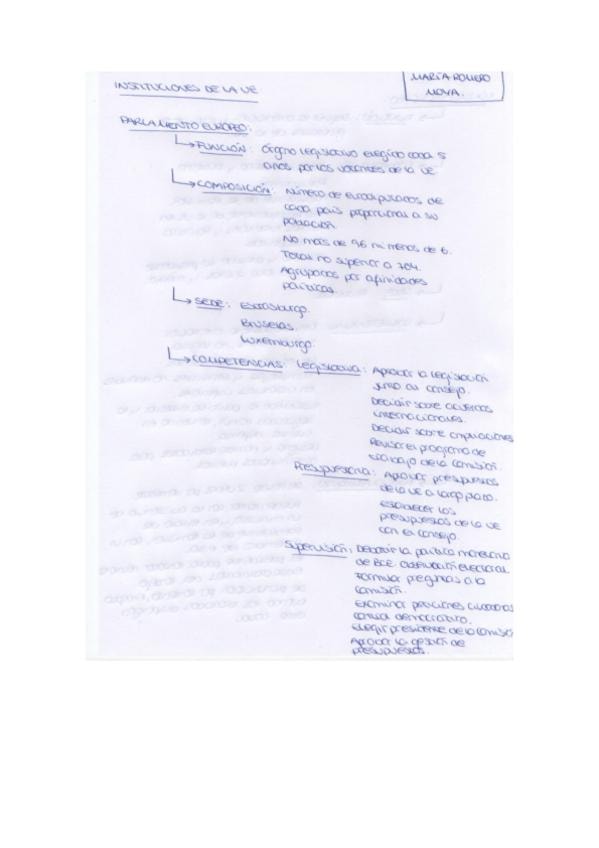 INSTITUCIONES DE LA UE
MARÍA ROMERO
MOYA.
PARLAMENTO EUROPEO:
FUNCIÓN: Órgano legislativo elegido cada 5
años por los votantes de la UE
COMPOSICIÓN: Número de eurodiputados de
cada país proporcional a su
población.
No más de 96 ni menos de 6.
Total no superior a 704.
Agrupados por afinidades
políticas.
SEDE: Estrasburgo.
Bruselas.
Luxemburgo.
COMPETENCIAS: Legislativa: Aprobar la legislación
junto au consejo.
Decidir sobre acuerdos
internacionales.
Decidir sobre ampliaciones
Revisar el programa de
trabajo de la comisión.
Presupuestaria: Aprobar presupuestos
de la UE a largo plazo.
establecer los
presupuestos de la UE
con el consejo.
Supervisión: Debatir la política monetaria
de BCE. observación electoral
Formular preguntas a la
comisión.
Examinar peticiones ciudadanas
control democrático.
Elegir presidente de la comisión
Aprobar la gestión de
presupuestos.